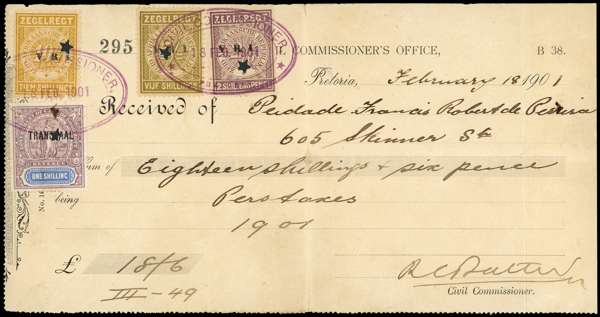 ZEGELREGT
V.R.I.
295
ZEGELREGT
V.R.I.
VIJF SHILLING
ZEGELREGT
V.R.I.
CIVIL COMMISSIONER
18 FEB. 1901
COMMISSIONER'S OFFICE,
B 38.
Pretoria, February 18 1901
COMMISSIONER
FEB. 1901
Received of Peidade Francis Robert de
605 Skinner St
TRANSVAAL
ONE SHILLING
of Eighteen shillings & six pence
being Perstaxes
1901
No.
£ 18/6
III-49
Civil Commissioner.